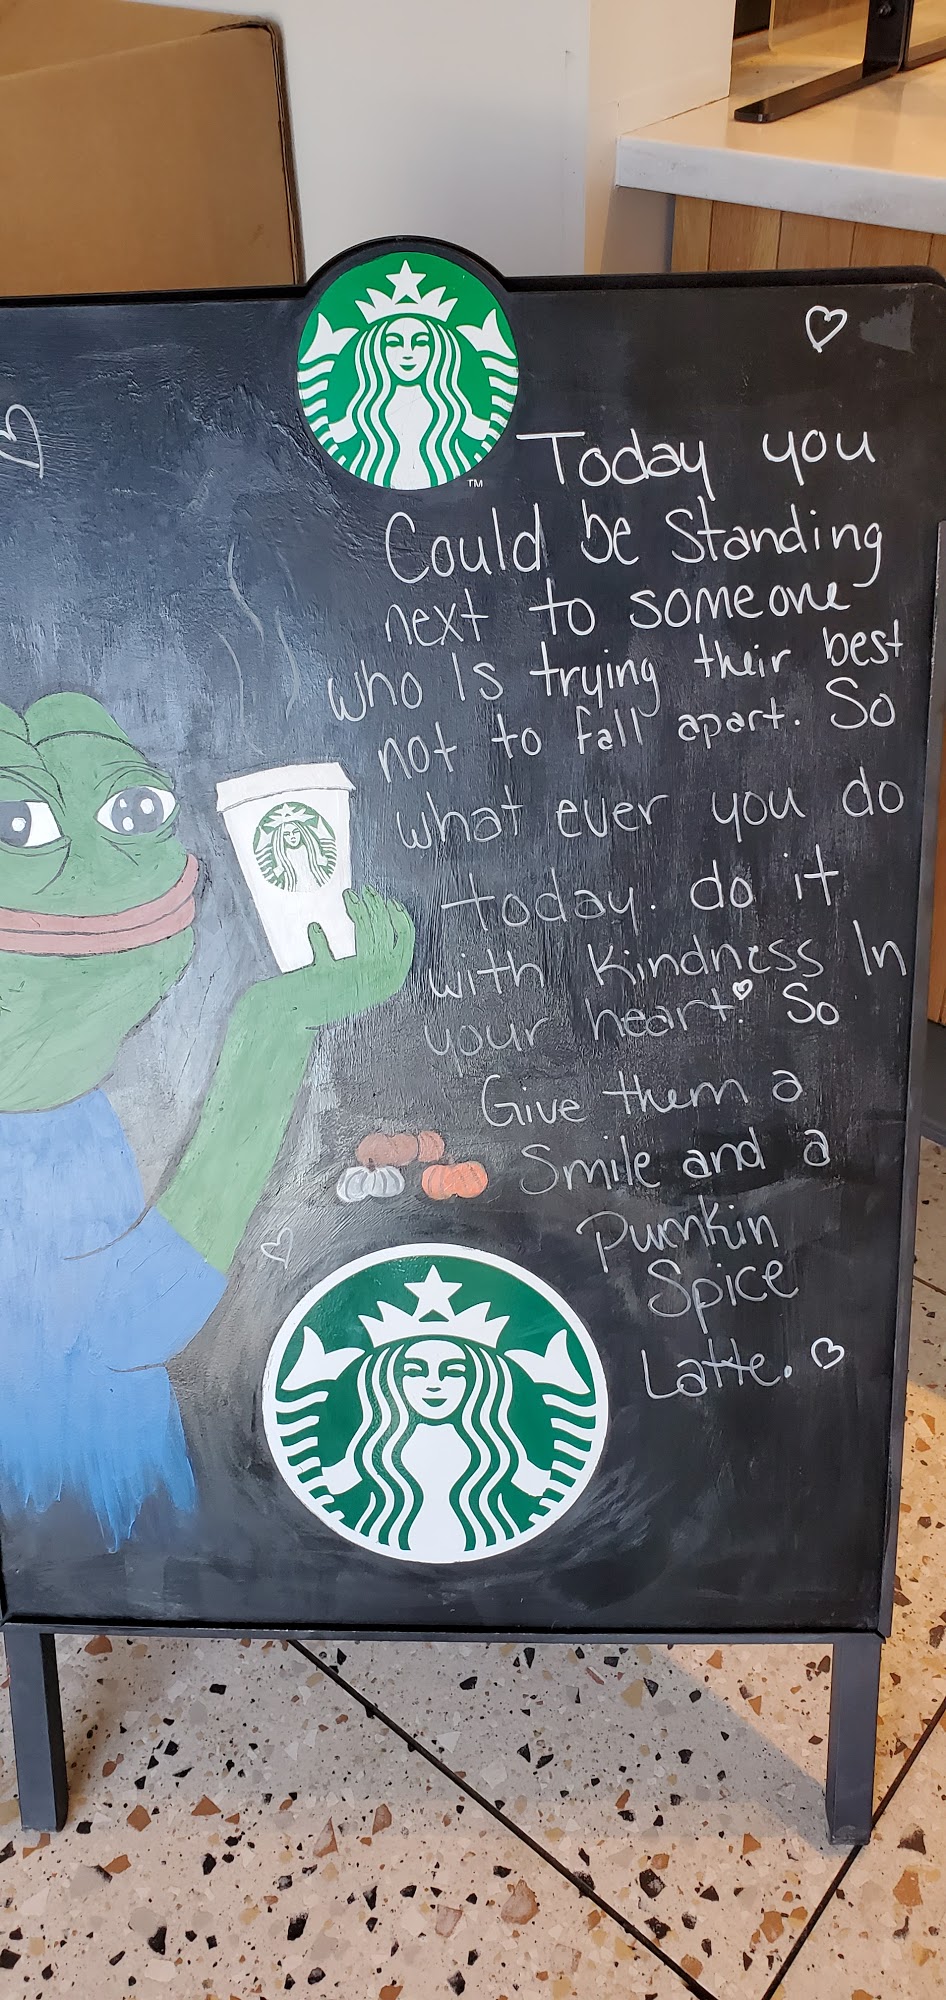 TM
Today you
Could be Standing
next to someone
who Is trying their best
not to fall apart. So
what ever you do
today. do it
with kindness In
your heart. So
Give them a
Smile and a
Pumkin
Spice
Latte.